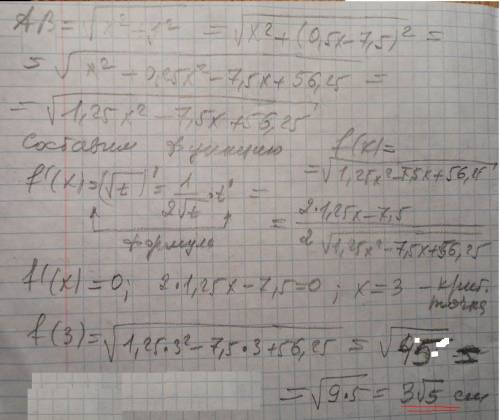 AB = √(x² - 1²) = √(x² + (0,5x - 7,5)²) =
= √(x² - 0,25x² - 7,5x + 56,25) =
= √(1,25x² - 7,5x + 56,25)
Составим функцию f(x) =
= √(1,25x² - 7,5x + 56,25)
f'(x) = (√t)' = 1/(2√t) · t' =
формула
= (2·1,25x - 7,5)/(2√(1,25x² - 7,5x + 56,25))
f'(x) = 0; 2·1,25x - 7,5 = 0; x = 3 - крит. точка
f(3) = √(1,25·3² - 7,5·3 + 56,25) = √45 =
= √(9·5) = 3√5 см